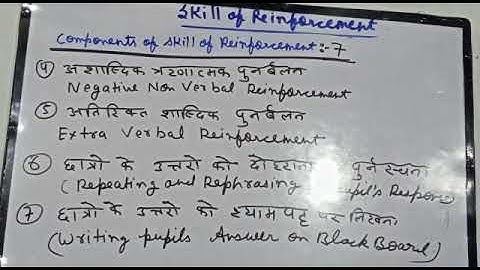 Skill of Reinforcement
Components of Skill of Reinforcement:-7
④ अशाब्दिक ऋणात्मक पुनर्बलन
Negative Non Verbal Reinforcement
⑤ अतिरिक्त शाब्दिक पुनर्बलन
Extra Verbal Reinforcement
⑥ छात्रो के उत्तरो को दोहराना पुर्नरचना
(Repeating and Rephrasing Pupil's Response
⑦ छात्रो के उत्तरो को श्यामपट्ट पर लिखना
(Writing pupils Answer on Black Board)